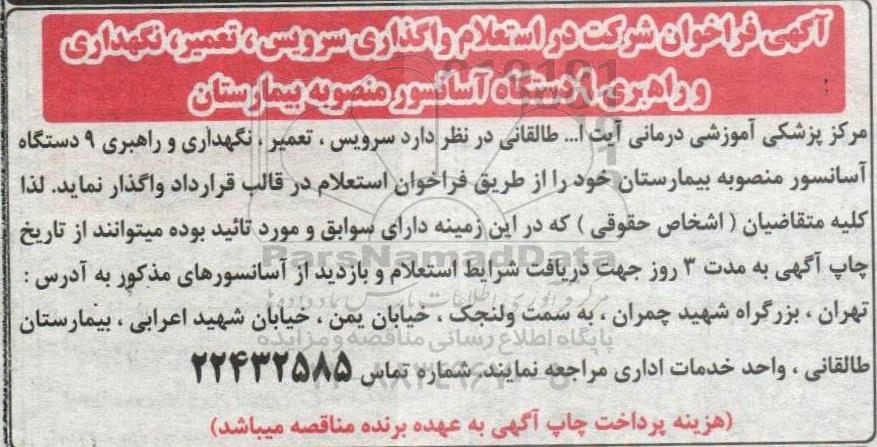 آگهی فراخوان شرکت در استعلام واگذاری سرویس ، تعمیر، نگهداری
و راهبری ۹ دستگاه آسانسور منصوبه بیمارستان
مرکز پزشکی آموزشی درمانی آیت ا... طالقانی در نظر دارد سرویس ، تعمیر ، نگهداری و راهبری ۹ دستگاه
آسانسور منصوبه بیمارستان خود را از طریق فراخوان استعلام در قالب قرارداد واگذار نماید. لذا
کلیه متقاضیان ( اشخاص حقوقی ) که در این زمینه دارای سوابق و مورد تائید بوده میتوانند از تاریخ
چاپ آگهی به مدت ۳ روز جهت دریافت شرایط استعلام و بازدید از آسانسورهای مذکور به آدرس :
تهران ، بزرگراه شهید چمران ، به سمت ولنجک ، خیابان یمن ، خیابان شهید اعرابی ، بیمارستان
طالقانی ، واحد خدمات اداری مراجعه نمایند. شماره تماس ۲۲۴۳۲۵۸۵
(هزینه پرداخت چاپ آگهی به عهده برنده مناقصه میباشد)
ParsNamadData
پایگاه اطلاع رسانی مناقصه و مزایده